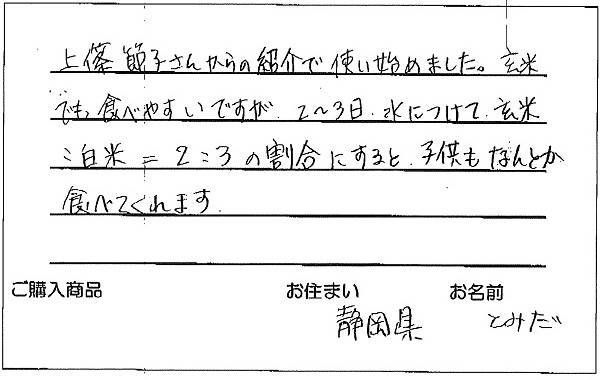 上條 節子さんからの紹介で使い始めました。玄米
でも食べやすいですが、2〜3日、水につけて、玄米
:白米=2:3の割合にすると、子供もなんとか
食べてくれます.
ご購入商品 お住まい お名前
静岡県 とみだ